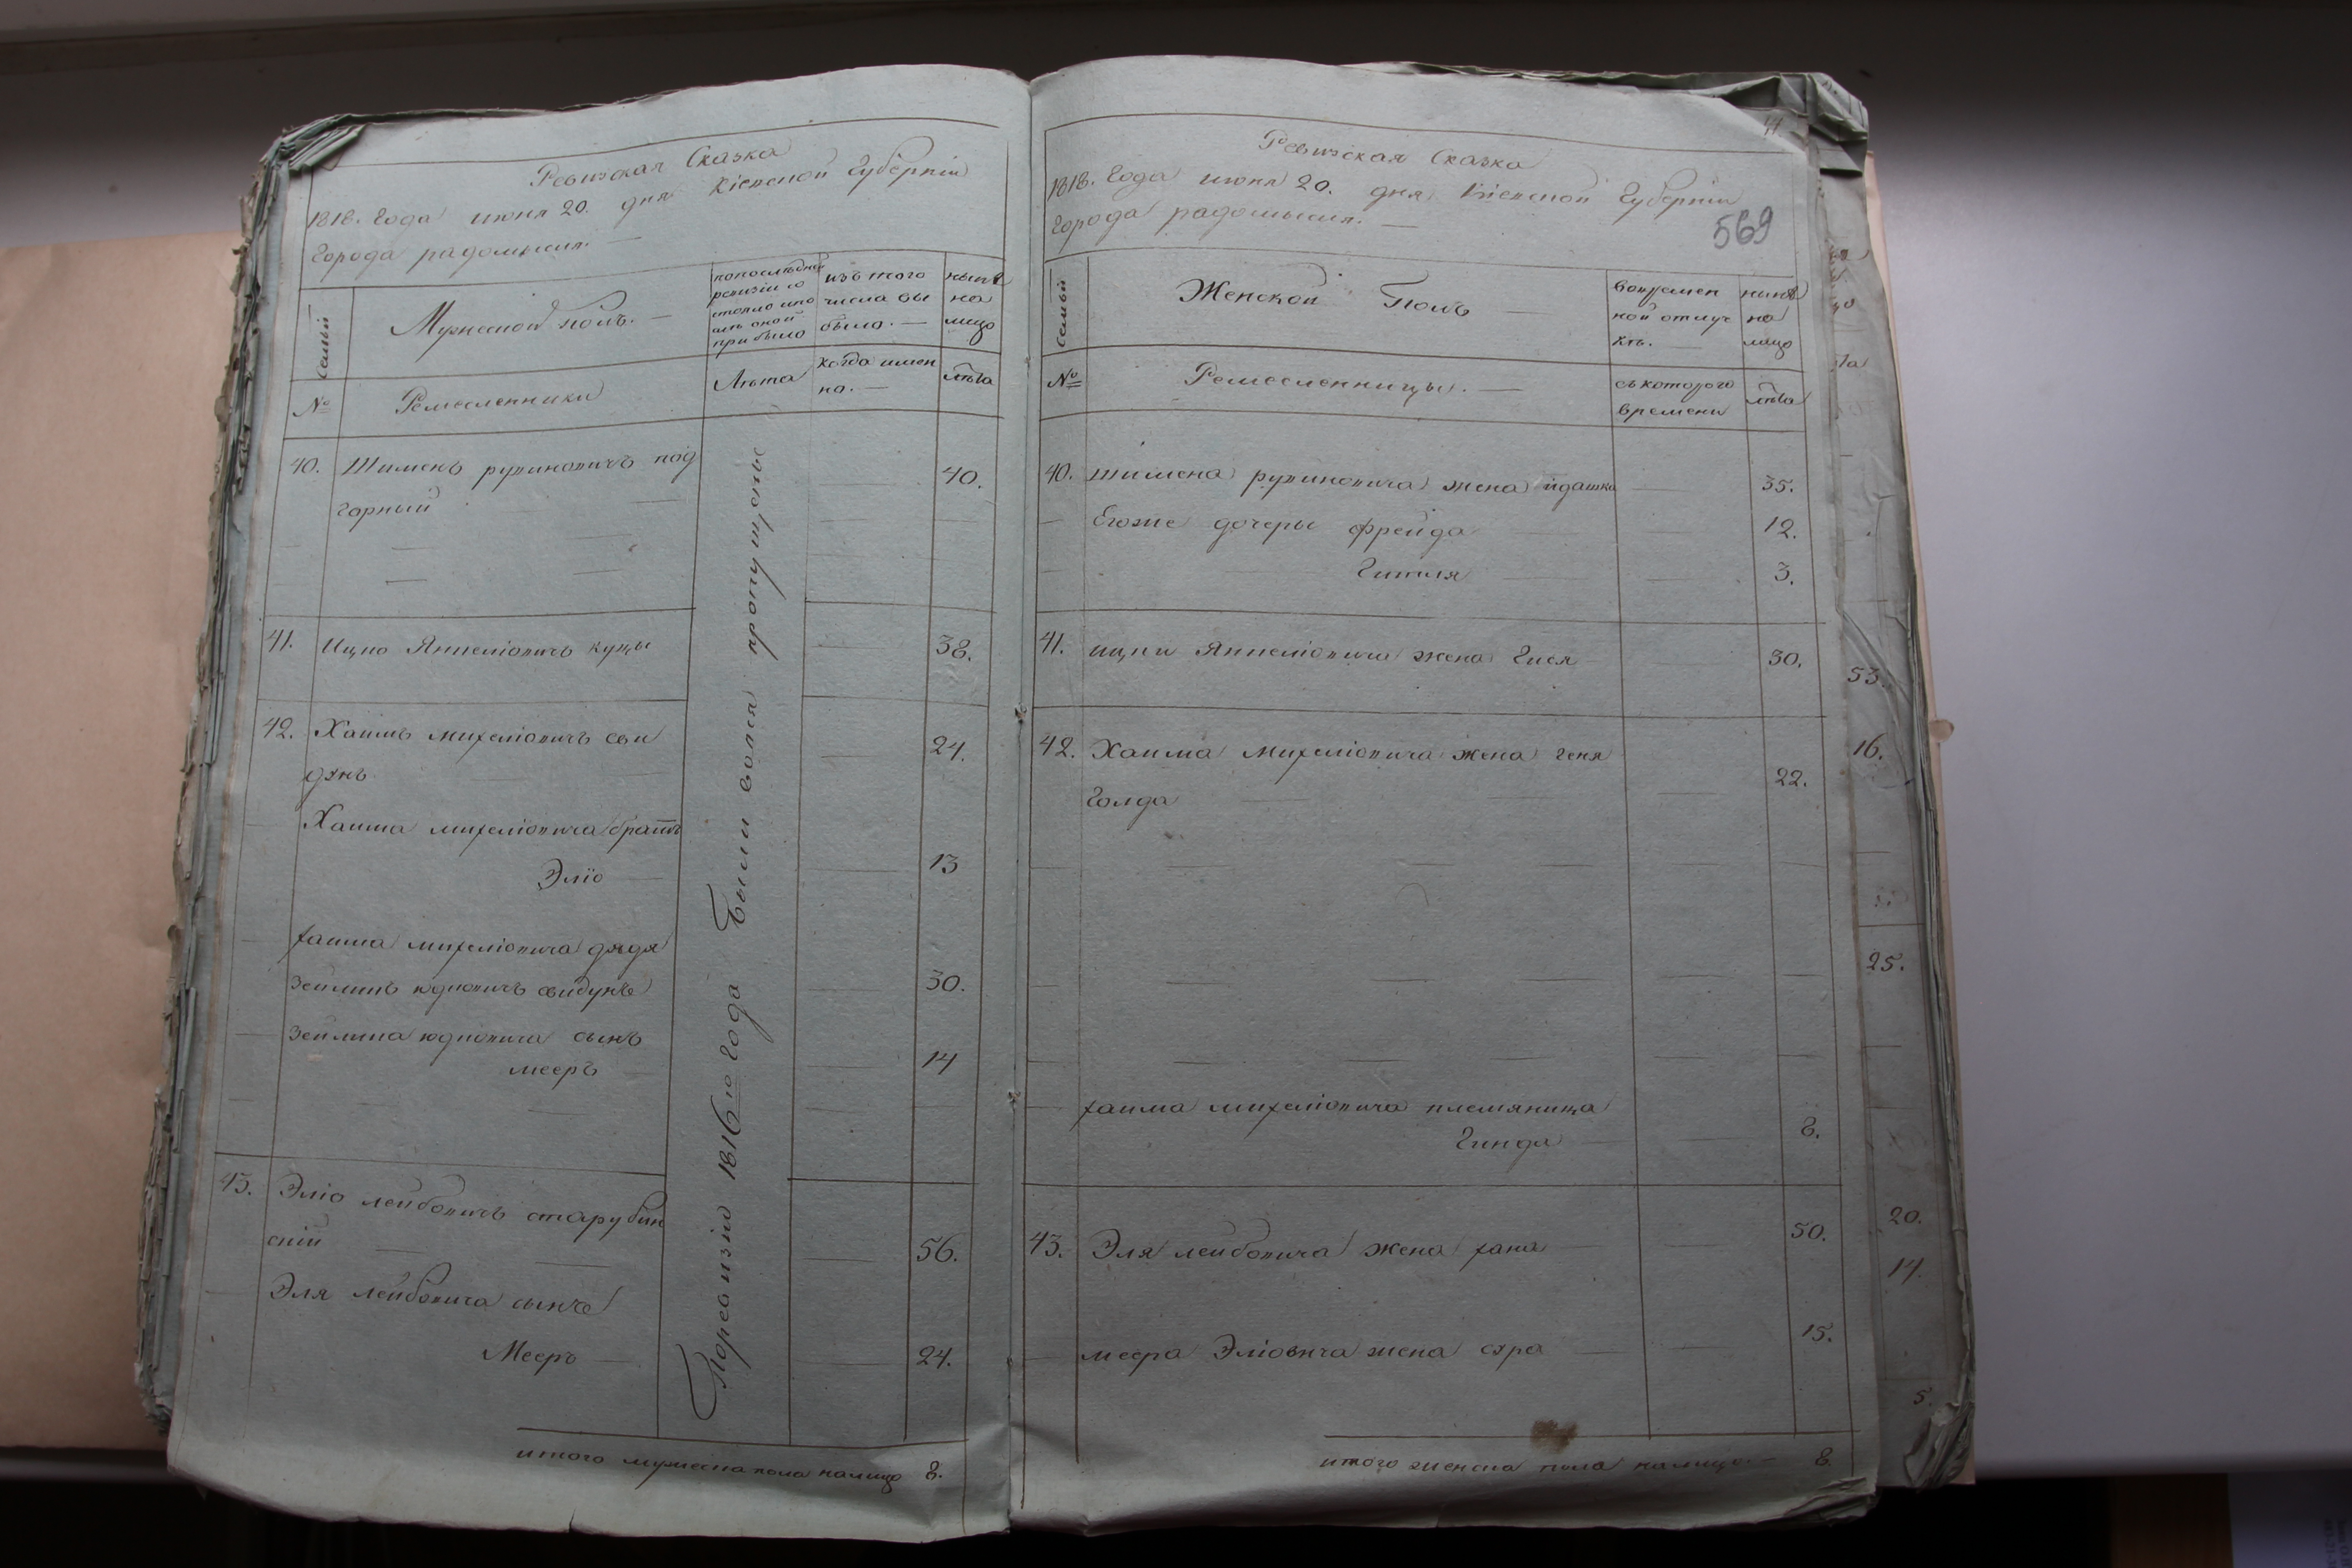 Ревизская Сказка
1818. Года июня 20. дня Кіевской Губерніи
Города радомысля. —
Семьи
Мужеской полъ. —
попоследней
ревизіи со
стояло ипо
слѣ оной
прибыло
изъ того
числа вы
было. —
нынѣ
на
лицо
№
Ремесленники
Лѣта
когда имен
но. —
лѣта
40. Шименъ рувиновичъ под 40.
горный
41. Ицко Янкеліовичъ куцы 38.
42. Хаимъ михеліовичъ сви 24.
дунъ
Хаима михеліовича братъ
Эліо 13
хаима михеліовича дядя
Зейликъ юдковичъ свидунъ 30.
Зейлика юдковича сынъ
мееръ 14
43. Эліо лейбовичъ старубин
скій 56.
Эля лейбовича сынъ
Мееръ 24.
По ревизіи 1816го года Были воля пропущоные
итого мужеска пола налицо 8.
41.
Ревизская Сказка
1818. Года июня 20. дня, Кіевской Губерніи
Города радомысля. —
569
Семьи
Женской Полъ —
вовремен
ной отлуч
кѣ. —
нынѣ
на
лицо
№
Ремесленницы. —
съкоторого
времени
лѣта
40. шимена рувиновича жена идашка 35.
Егоже дочеры фрейда 12.
Гитля 3.
41. ицки Янкеліовича жена Гися 30.
42. Хаима михеліовича жена геня
Голда 22.
хаима михеліовича племяница
Гинда 8.
43. Эля лейбовича жена хана 50.
меера Эліовича жена сура 15.
итого женска пола налицо. — 8.
53.
16.
25.
20.
14.
5.